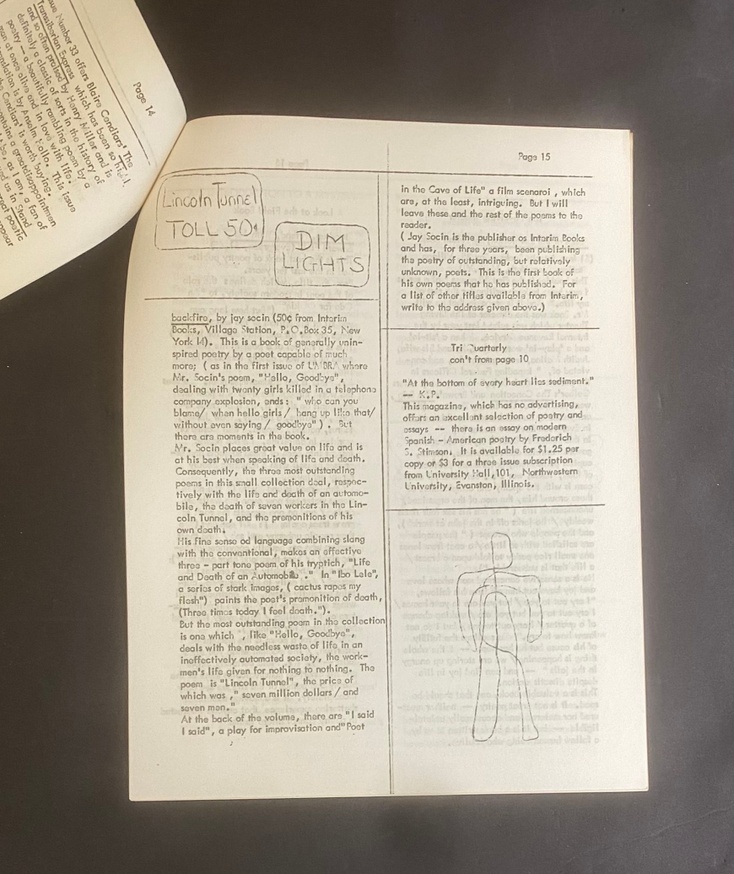 Page 14
Number 33 offers Blaire Cendlars' The
Transiberian Express which has been so
and so often praised by Henry Miller and is
definitely a classic of sorts in the history of
poetry — a beautifully rambling poem by a
man at once alive and in love with life.
translation is by Anselm Hollo. This issue
Cendlars' is worth buying.
as I am, a fan of
us in Stand
Page 15
Lincoln Tunnel
TOLL 50¢
DIM
LIGHTS
backfire, by jay socin (50¢ from Interim
Books, Village Station, P.O.Box 35, New
York 14). This is a book of generally unin-
spired poetry by a poet capable of much
more; ( as in the first issue of UMBRA where
Mr. Socin's poem, "Hello, Goodbye",
dealing with twenty girls killed in a telephone
company explosion, ends: " who can you
blame/ when hello girls / hang up like that/
without even saying / goodbye" ) . But
there are moments in the book.
Mr. Socin places great value on life and is
at his best when speaking of life and death.
Consequently, the three most outstanding
poems in this small collection deal, respec-
tively with the life and death of an automo-
bile, the death of seven workers in the Lin-
coln Tunnel, and the premonitions of his
own death.
His fine sense od language combining slang
with the conventional, makes an effective
three - part tone poem of his tryptich, "Life
and Death of an Automobile ." In "Ibo Lele",
a series of stark images, ( cactus rapes my
flesh") paints the poet's premonition of death,
(Three times today I feel death.").
But the most outstanding poem in the collection
is one which , like "Hello, Goodbye",
deals with the needless waste of life in an
ineffectively automated society, the work-
men's life given for nothing to nothing. The
poem is "Lincoln Tunnel", the price of
which was ," seven million dollars / and
seven men."
At the back of the volume, there are "I said
I said", a play for improvisation and "Poet
in the Cave of Life" a film scenaroi , which
are, at the least, intriguing. But I will
leave these and the rest of the poems to the
reader.
( Jay Socin is the publisher os Interim Books
and has, for three years, been publishing
the poetry of outstanding, but relatively
unknown, poets. This is the first book of
his own poems that he has published. For
a list of other titles available from Interim,
write to the address given above.)
Tri Quarterly
con't from page 10
"At the bottom of every heart lies sediment."
-- K.P.
This magazine, which has no advertising,
offers an excellent selection of poetry and
essays -- there is an essay on modern
Spanish - American poetry by Frederich
S. Stimson. It is available for $1.25 per
copy or $3 for a three issue subscription
from University Hall,101, Northwestern
University, Evanston, Illinois.